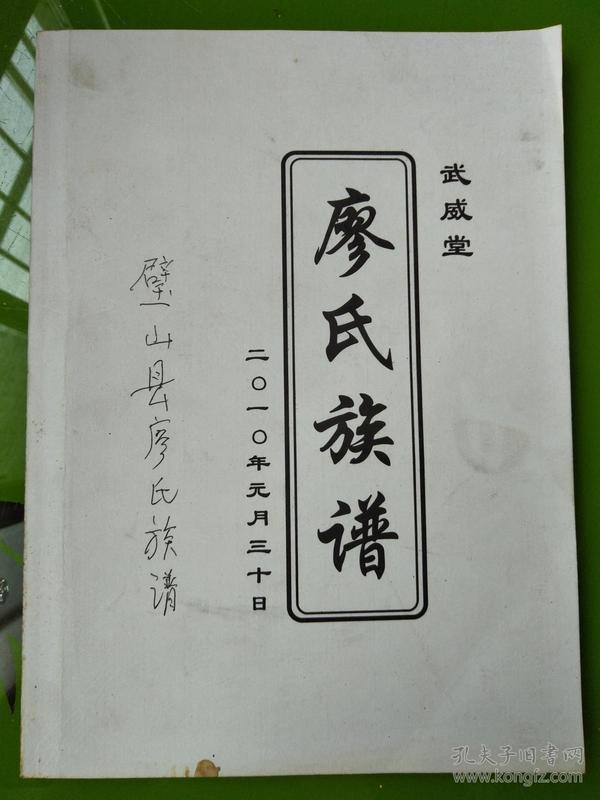 武威堂
廖氏族谱
二〇一〇年元月三十日
璧山县廖氏族谱
孔夫子旧书网
www.kongfz.com